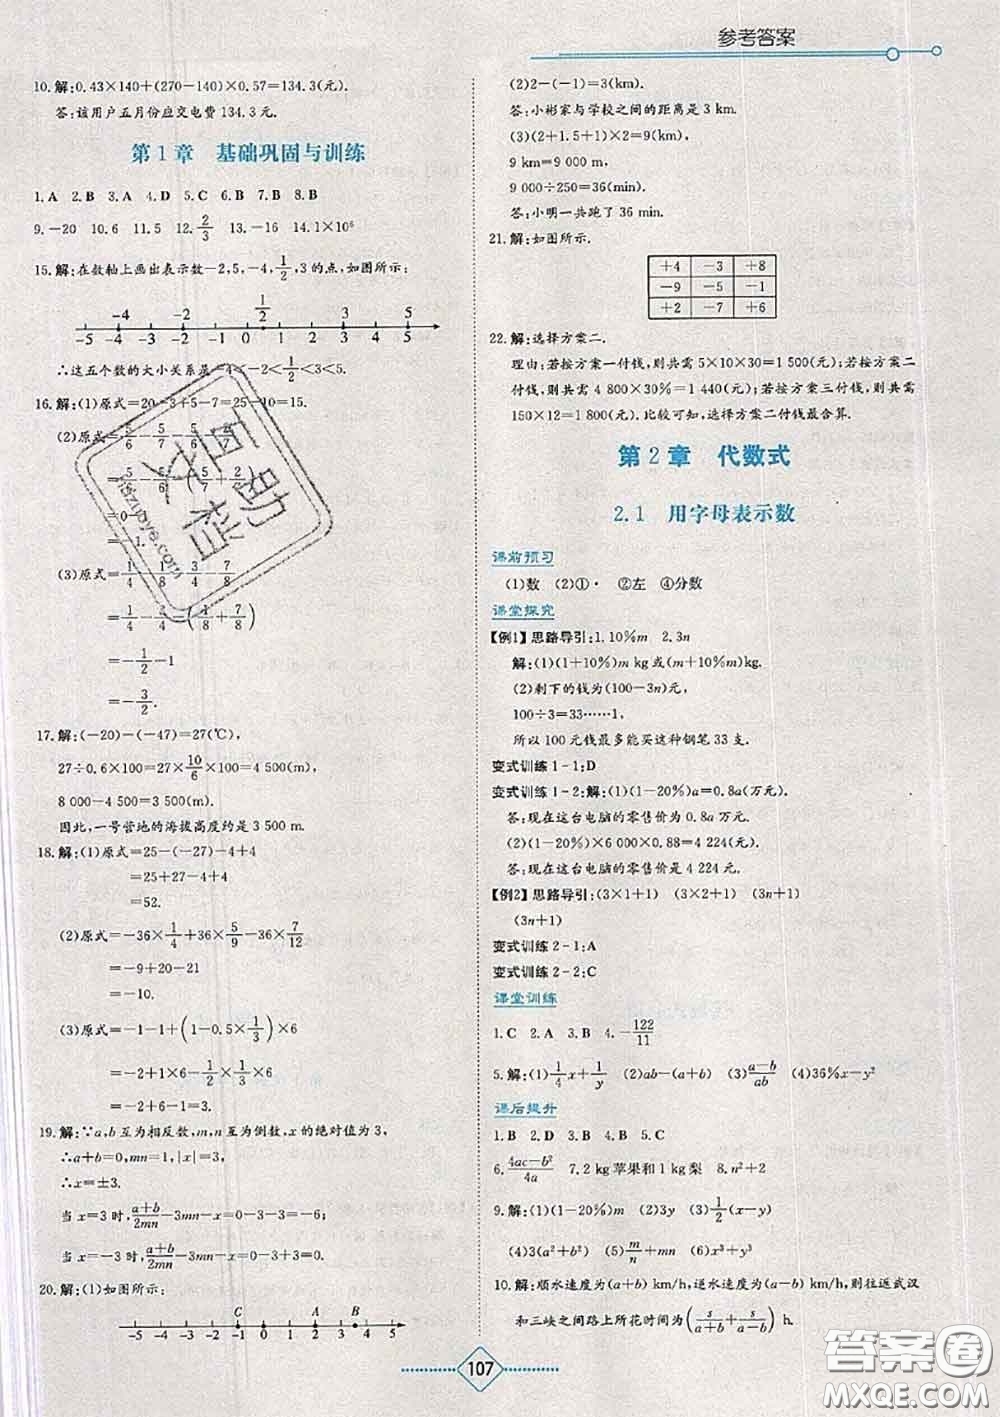 参考答案
10.解:0.43×140+(270-140)×0.57=134.3(元).
答:该用户五月份应交电费 134.3 元.
第1章 基础巩固与训练
1.A 2.B 3.A 4.D 5.C 6.B 7.B 8.B
9.-20 10.6 11.5 12.2/3 13.-16 14.1×10⁶
15.解:在数轴上画出表示数-2,5,-4,1/2,3的点,如图所示:
-4 -2 1/2 3 5
-5 -4 -3 -2 -1 0 1 2 3 4 5
∴这五个数的大小关系是-4<-2<1/2<3<5.
16.解:(1)原式=20-3+5-7=25-10=15.
(2)原式=5/6-5/7-5/6-2/7
=0-
=-1.
(3)原式=1/4-1/8-3/4-7/8
=1/4-3/4-(1/8+7/8)
=-1/2-1
=-3/2.
17.解:(-20)-(-47)=27(℃),
27÷0.6×100=27×10/6×100=4 500(m),
8 000-4 500=3 500(m).
因此,一号营地的海拔高度约是 3 500 m.
18.解:(1)原式=25-(-27)-4+4
=25+27-4+4
=52.
(2)原式=-36×1/4+36×5/9-36×7/12
=-9+20-21
=-10.
(3)原式=-1-1+(1-0.5×1/3)×6
=-2+1×6-1/2×1/3×6
=-2+6-1=3.
19.解:∵a,b互为相反数,m,n互为倒数,x的绝对值为3,
∴a+b=0,mn=1,|x|=3,
∴x=±3.
当x=3时,(a+b)/2mn-3mn-x=0-3-3=-6;
当x=-3时,(a+b)/2mn-3mn-x=0-3+3=0.
20.解:(1)如图所示:
C A B
-5 -4 -3 -2 -1 0 1 2 3 4 5
(2)2-(-1)=3(km).
答:小彬家与学校之间的距离是 3 km.
(3)(2+1.5+1)×2=9(km),
9 km=9 000 m,
9 000÷250=36(min).
答:小明一共跑了 36 min.
21.解:如图所示.
+4 -3 +8
-9 -5 -1
+2 -7 +6
22.解:选择方案二.
理由:若按方案一付钱,则共需5×10×30=1 500(元);若按方案二
付钱,则共需4 800×30%=1 440(元);若按方案三付钱,则共需
150×12=1 800(元).比较可知,选择方案二付钱最合算.
第2章 代数式
2.1 用字母表示数
课前预习
(1)数 (2)①· ②左 ④分数
课堂探究
【例1】思路导引:1.10%m 2.3n
解:(1)(1+10%)m kg或(m+10%m)kg.
(2)剩下的钱为(100-3n)元,
100÷3=33……1,
所以100元钱最多能买这种钢笔33支.
变式训练1-1:D
变式训练1-2:解:(1)(1-20%)a=0.8a(万元).
答:现在这台电脑的零售价为0.8a万元.
(2)(1-20%)×6 000×0.88=4 224(元).
答:现在这台电脑的零售价为4 224元.
【例2】思路导引:(3×1+1) (3×2+1) (3n+1)
(3n+1)
变式训练2-1:A
变式训练2-2:C
课堂训练
1.C 2.A 3.B 4.-122/11
5.解:(1)1/4x+1/y (2)ab-(a+b) (3)(a-b)/ab (4)36%x-y²
课后提升
1.B 2.D 3.B 4.B 5.C
6.(4ac-b²)/4a 7.2 kg苹果和1 kg梨 8.n²+2
9.解:(1)(1-20%)m (2)3y (3)1/2(x³-y³)
(4)3(a²+b²) (5)m/n+mn (6)(x-y)²
10.解:顺水速度为(a+b) km/h,逆水速度为(a-b) km/h,则往返武汉
和三峡之间路上所花时间为(s/(a+b)+s/(a-b)) h.
107
答案圈
MXQE.COM